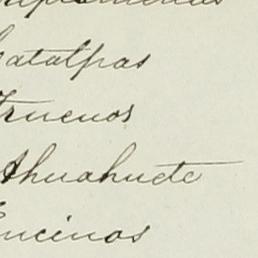 Catalpas
Truenos
Ahuahuete
Encinos